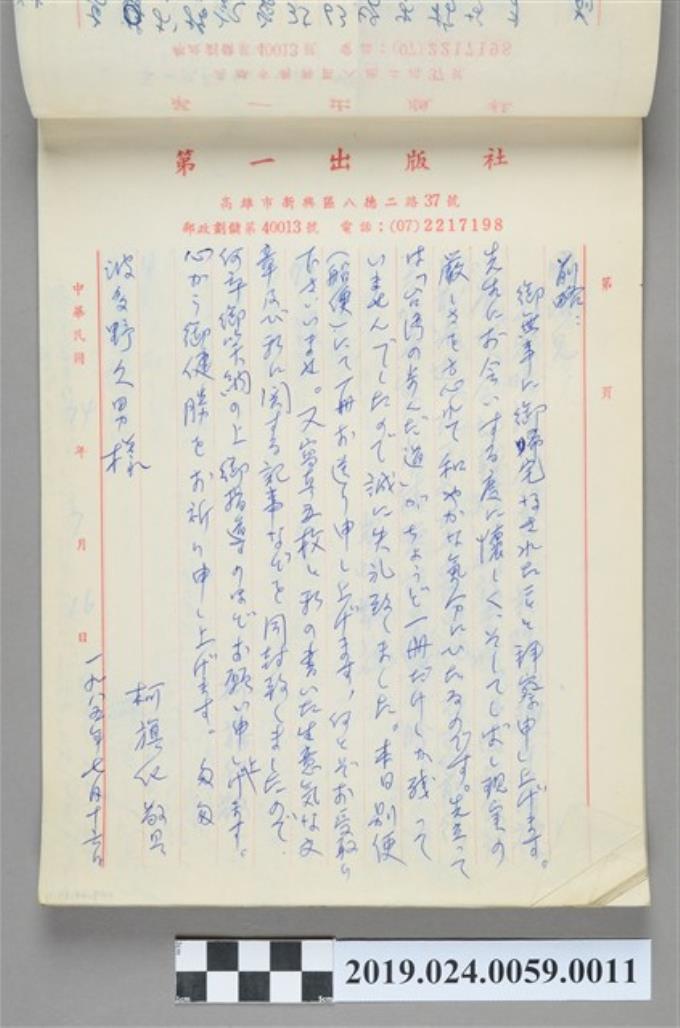 第一出版社
高雄市新興區八德二路37號
郵政劃儲第40013號 電話:(07)2217198
第 頁
前略:
御無事に御帰宅なされたこと拝察申し上げます。
先生にお会いする度に懐しく、そしてしばし現実の
厳しさを忘れて和やかな気分にひたるのです。先立って
は「台湾の歩んだ道」がちょうど一冊だけしか残って
いませんでしたので誠に失礼致しました。本日別便
(船便)にて一冊お送り申し上げます、何とぞお受取り
下さいませ。又写真五枚と私の書いた生意気な文
章及び私に関する記事などを同封致しましたので、
何卒御笑納の上御指導のほどお願い申し上げます。
心から御健勝をお祈り申し上げます。 匆匆
柯旗化 敬具
波多野久男様
一九八五年七月十六日
中華民國 74 年 7 月 16 日
2019.024.0059.0011